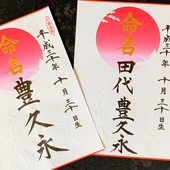 命名
豊久永
平成三十年 十月 三十日生
命名
田代豊久永
平成三十年 十月 三十日生